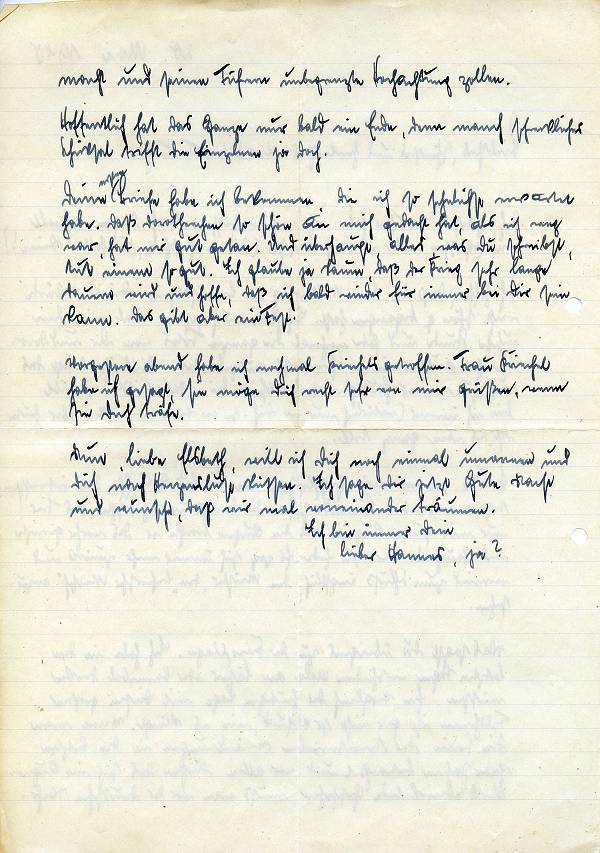 macht und seinen Führern unbegrenzte Hochachtung zollen.
Hoffentlich hat das Ganze nur bald ein Ende, denn manch schreckliches
Schicksal trifft die Einzelnen ja doch.
Deine Briefe habe ich bekommen, die ich so sehnlichst erwartet
habe. Daß so schön an mich gedacht hat, als ich weg
war, hat mir gut getan. Und überhaupt, alles was Du schreibst,
tut einem so gut. Ich glaube ja kaum, daß der Krieg sehr lange
dauern wird und hoffe, daß ich bald wieder für immer bei Dir sein
kann. Das gibt aber ein Fest.
Vorgestern abend habe ich nochmal getroffen. Frau
habe ich gesagt, sie möge Dich recht sehr von mir grüßen, wenn
sie Dich träfe.
Nun, liebe Elsbeth, will ich Dich noch einmal umarmen und
Dich nach Herzenslust küssen. Ich sage Dir jetzt Gute Nacht
und wünsche, daß wir mal voneinander träumen.
Ich bin immer Dein
lieber Hannes, ja?